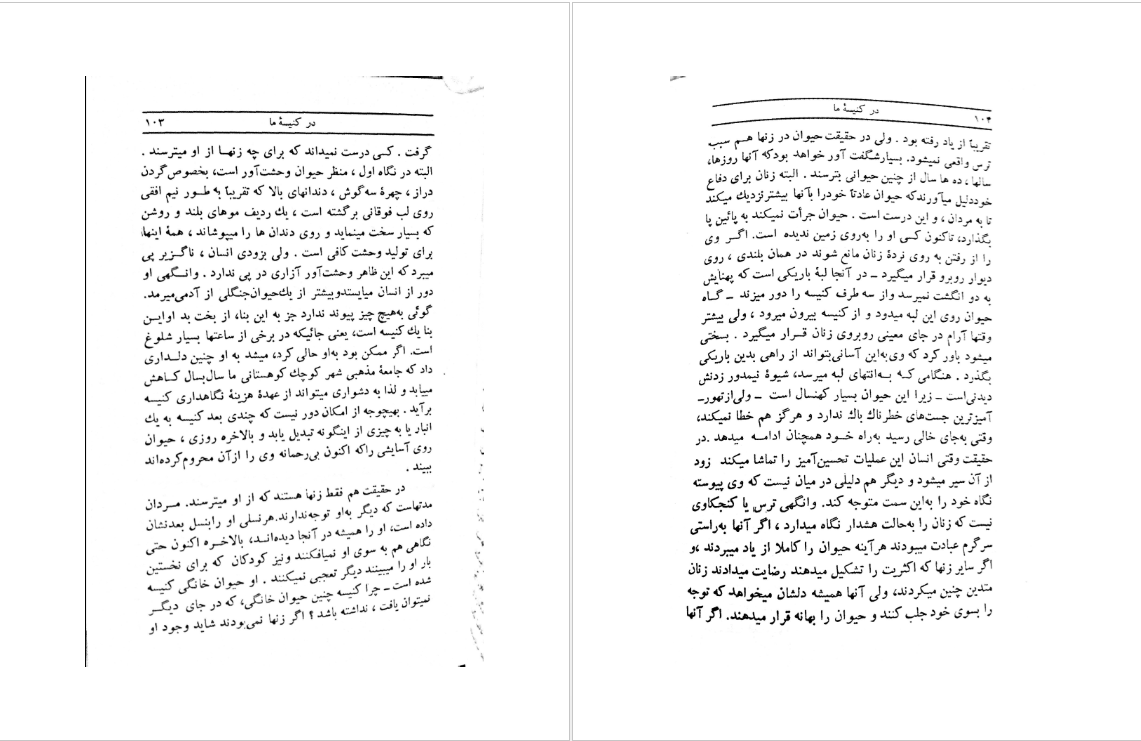 در کنیسهٔ ما ۱۰۳
گرفت . کسی درست نمیداند که برای چه زنها از او میترسند .
البته در نگاه اول ، منظر حیوان وحشت‌آور است، بخصوص گردن
دراز ، چهرهٔ سه‌گوش ، دندانهای بالا که تقریباً به طور نیم افقی
روی لب فوقانی برگشته است ، یك ردیف موهای بلند و روشن
که بسیار سخت مینماید و روی دندان ها را میپوشاند ، همهٔ اینها،
برای تولید وحشت کافی است . ولی بزودی انسان ، ناگزیر پی
میبرد که این ظاهر وحشت‌آور آزاری در پی ندارد . وانگهی او
دور از انسان میایستدوبیشتر از یك‌حیوان‌جنگلی از آدمی‌میرمد.
گوئی به‌هیچ چیز پیوند ندارد جز به این بنا، از بخت بد اواین
بنا یك کنیسه است، یعنی جائیکه در برخی از ساعتها بسیار شلوغ
است. اگر ممکن بود به‌او حالی کرد، میشد به او چنین دلـداری
داد که جامعهٔ مذهبی شهر کوچك کوهستانی ما سال‌بسال کـاهش
مییابد و لذا به دشواری میتواند از عهدهٔ هزینهٔ نگاهداری کنیسه
برآید . بهیچوجه از امکان دور نیست که چندی بعد کنیسه به یك
انبار یا به چیزی از اینگونه تبدیل یابد و بالاخره روزی ، حیوان
روی آسایشی راکه اکنون بی‌رحمانه وی را ازآن محروم‌کرده‌اند
ببیند .
در حقیقت هم فقط زنها هستند که از او میترسند. مـردان
مدتهاست که دیگر به‌او توجه‌ندارند.هرنسلی او رابنسل بعدنشان
داده است، او را همیشه در آنجا دیده‌انـد، بالاخـره اکنون حتی
نگاهی هم به سوی او نمیافکنند ونیز کودکان که برای نخستین
بار او را میبینند دیگر تعجبی نمیکنند . او حیوان خانگی کنیسه
شده است ـ چرا کنیسه چنین حیوان خانگی، که در جای دیگـر
نمیتوان یافت ، نداشته باشد ؟ اگر زنها نمی‌بودند شاید وجود او
در کنیسهٔ ما ۱۰۴
تقریباً از یاد رفته بود . ولی در حقیقت حیوان در زنها هـم سبب
ترس واقعی نمیشود. بسیارشگفت آور خواهد بودکه آنها روزها،
سالها ، ده ها سال از چنین حیوانی بترسند . البته زنان برای دفاع
خوددلیل میآورندکه حیوان عادتاً خودرا بآنها بیشترنزدیك میکند
تا به مردان ، و این درست است . حیوان جرأت نمیکند به پائین پا
بگذارد، تاکنون کسی او را به‌روی زمین ندیده است. اگـر وی
را از رفتن به روی نردهٔ زنان مانع شوند در همان بلندی ، روی
دیوار روبرو قرار میگیرد ـ در آنجا لبهٔ باریکی است که پهنایش
به دو انگشت نمیرسد واز سه طرف کنیسه را دور میزند ـ گـاه
حیوان روی این لبه میدود و از کنیسه بیرون میرود ، ولی بیشتر
وقتها آرام در جای معینی روبروی زنان قـرار میگیرد . بسختی
میشود باور کرد که وی‌به‌این آسانی‌بتواند از راهی بدین باریکی
بگذرد . هنگامی کـه بـه‌انتهای لبه میرسد، شیوهٔ نیمدور زدنش
دیدنی‌است ـ زیرا این حیوان بسیار کهنسال است ـ ولی‌ازتهورـ
آمیزترین جست‌های خطرناك باك ندارد و هرگز هم خطا نمیکند،
وقتی به‌جای خالی رسید به‌راه خـود همچنان ادامـه میدهد .در
حقیقت وقتی انسان این عملیات تحسین‌آمیز را تماشا میکند زود
از آن سیر میشود و دیگر هم دلیلی در میان نیست که وی پیوسته
نگاه خود را به‌این سمت متوجه کند. وانگهی ترس یا کنجکاوی
نیست که زنان را به‌حالت هشدار نگاه میدارد ، اگر آنها به‌راستی
سرگرم عبادت میبودند هرآینه حیوان را کاملا از یاد میبردند ،و
اگر سایر زنها که اکثریت را تشکیل میدهند رضایت میدادند زنان
متدین چنین میکردند، ولی آنها همیشه دلشان میخواهد که توجه
را بسوی خود جلب کنند و حیوان را بهانه قرار میدهند. اگر آنها